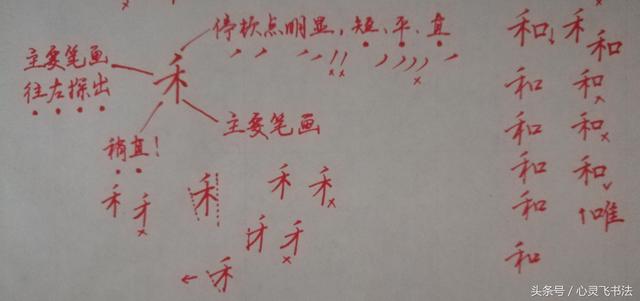 停软点明显,短、平、直
主要笔画
往左探出
禾
主要笔画
稍直!
禾 禾
禾
禾 禾
禾 禾
禾
和! 禾
和
和 和
和 和
和 和
和 唯
和
头条号 / 心灵飞书法